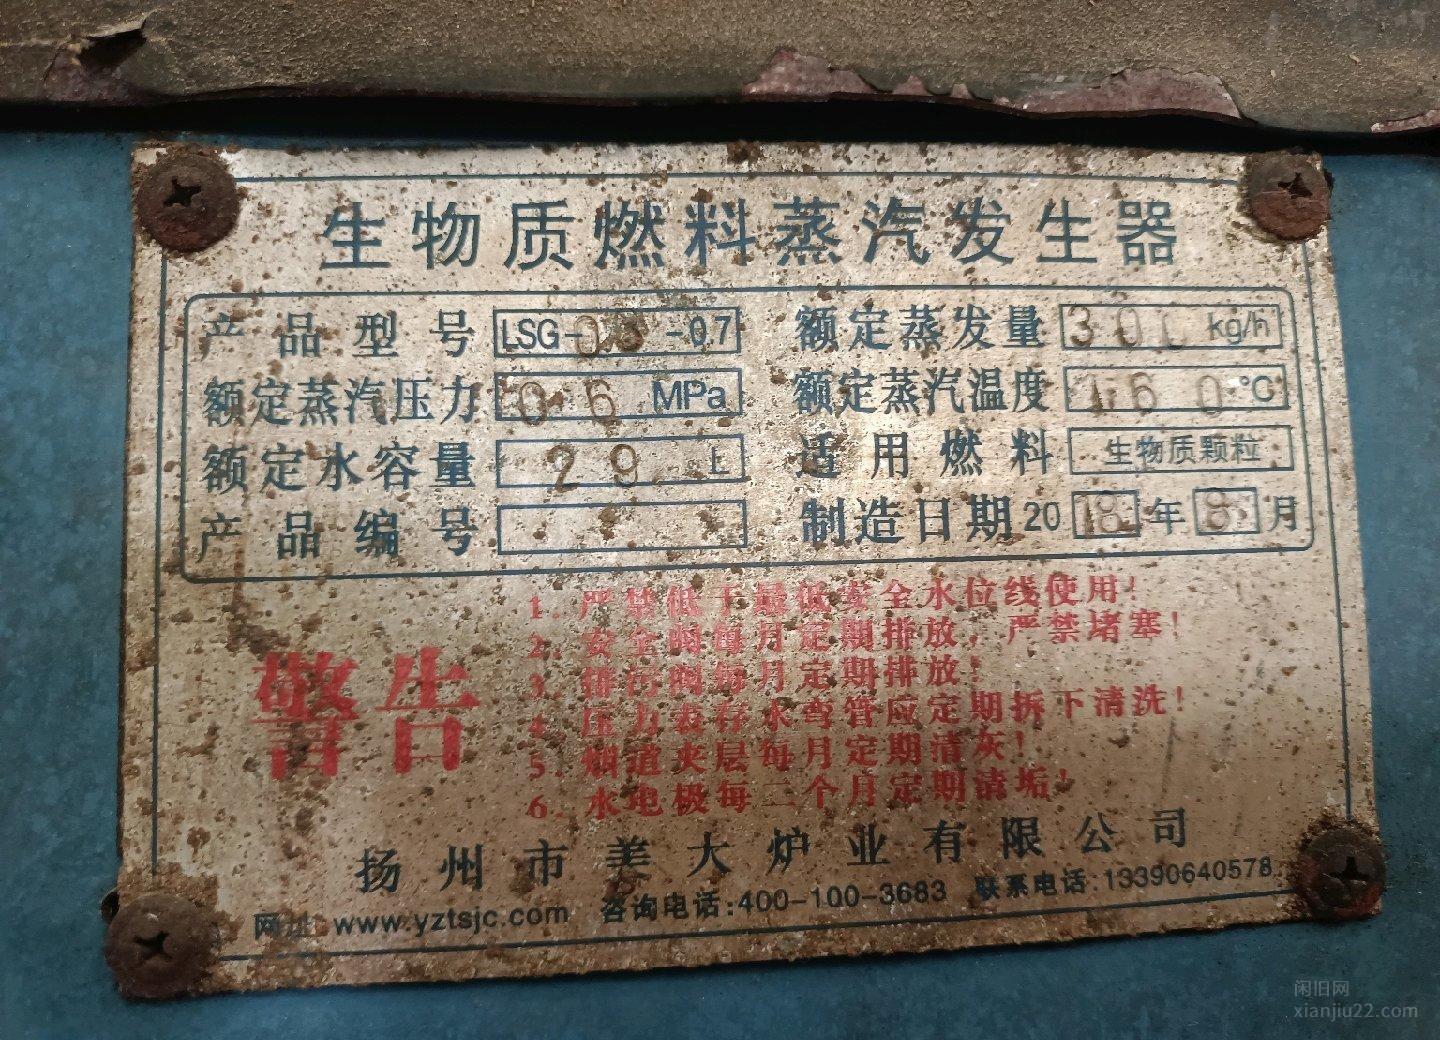 生物质燃料蒸汽发生器
产品型号 LSG-03-0.7 额定蒸发量 300 kg/h
额定蒸汽压力 06 MPa 额定蒸汽温度 160 ℃
额定水容量 29 L 适用燃料 生物质颗粒
产品编号 制造日期20 18 年 8 月
警告
1. 严禁低于最低安全水位线使用!
2. 安全阀每月定期排放,严禁堵塞!
3. 排污阀每月定期排放!
4. 压力表存水弯管应定期拆下清洗!
5. 烟道夹层每月定期清灰!
6. 水电极每二个月定期清垢!
扬州市美大炉业有限公司
网址: www.yztsjc.com 咨询电话:400-100-3683 联系电话:13390640578
闲旧网
xianjiu22.com